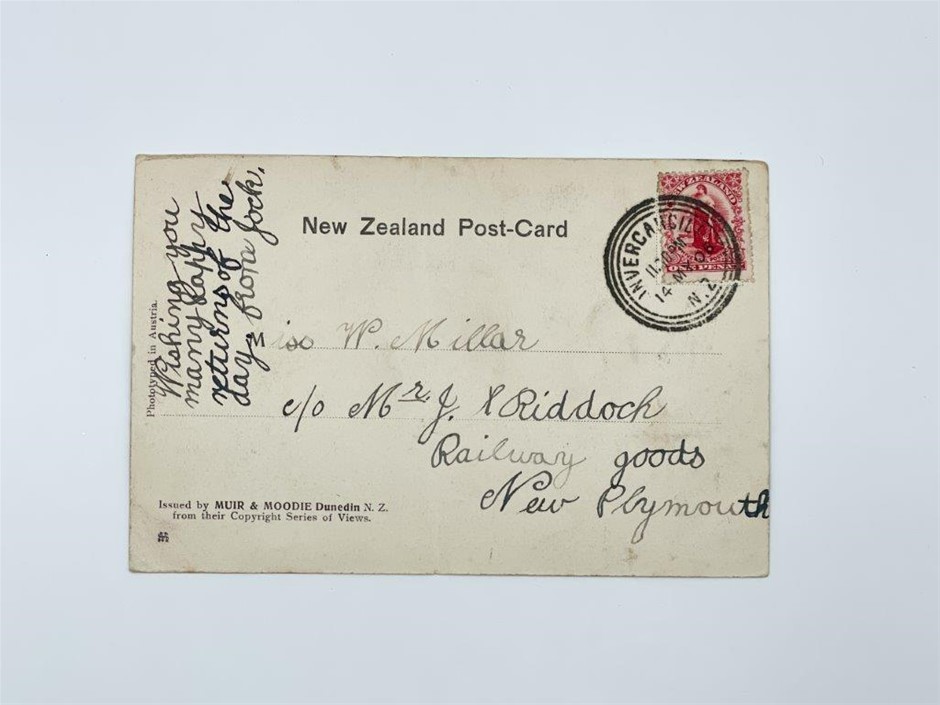 New Zealand Post-Card
NEW ZEALAND
ONE PENNY
INVERCARGILL
11.30PM
14 MY
N.Z
Wishing you
many happy
returns of the
day from Jock.
Phototyped in Austria.
Miss W. Millar
c/o Mr. J. Riddoch
Railway goods
New Plymouth
Issued by MUIR & MOODIE Dunedin N. Z.
from their Copyright Series of Views.